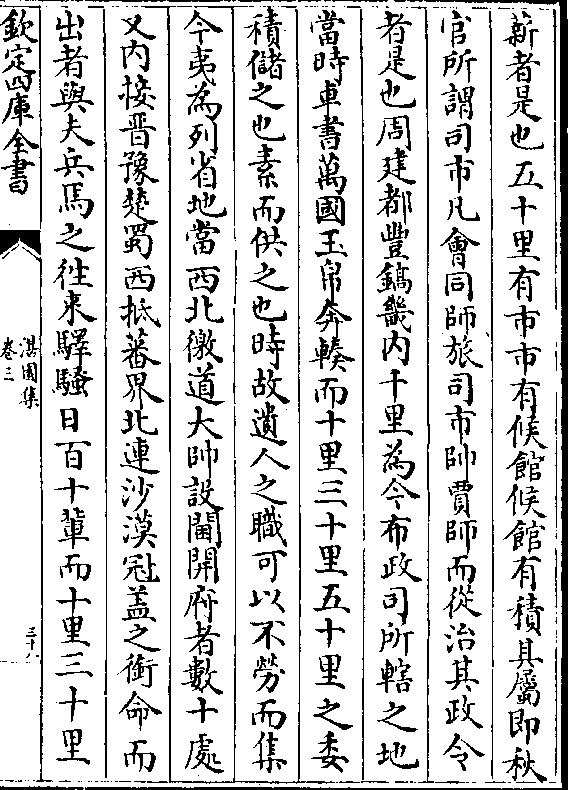 薪者是也五十里有市市有候館候館有積其屬即秋
官所謂司市凡會同師旅司市帥賈師而從治其政令
者是也周建都豐鎬畿内千里為今布政司所轄之地
當時車書萬國玉帛奔輳而十里三十里五十里之委
積儲之也素而供之也時故遺人之職可以不勞而集
今夷為列省地當西北徼道大帥設閫開府者數十處
又内接晋豫楚蜀西抵蕃界北連沙漠冠盖之銜命而
出者與夫兵馬之徃来驛騷日百十輩而十里三十里
欽定四庫全書
湛園集
卷三
三十八